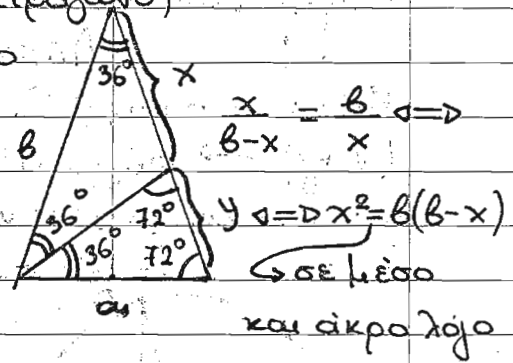 36° x
x/(β-x) = β/x <=>
β
36° 72° y <=> x² = β(β-x)
36° 72° ↳ σε μέσο
α
και άκρο λόγο